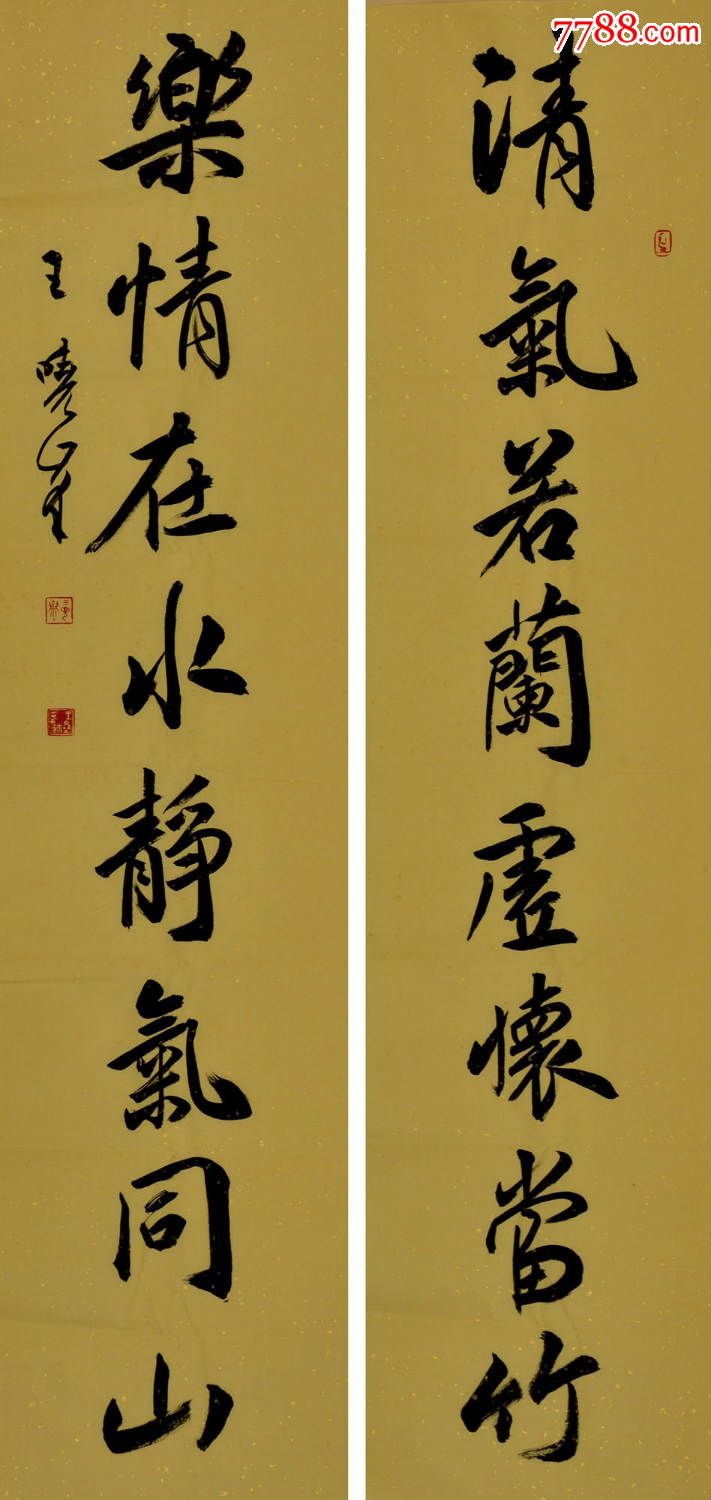 7788.com
清氣若蘭虛懷當竹
樂情在水靜氣同山
王曉